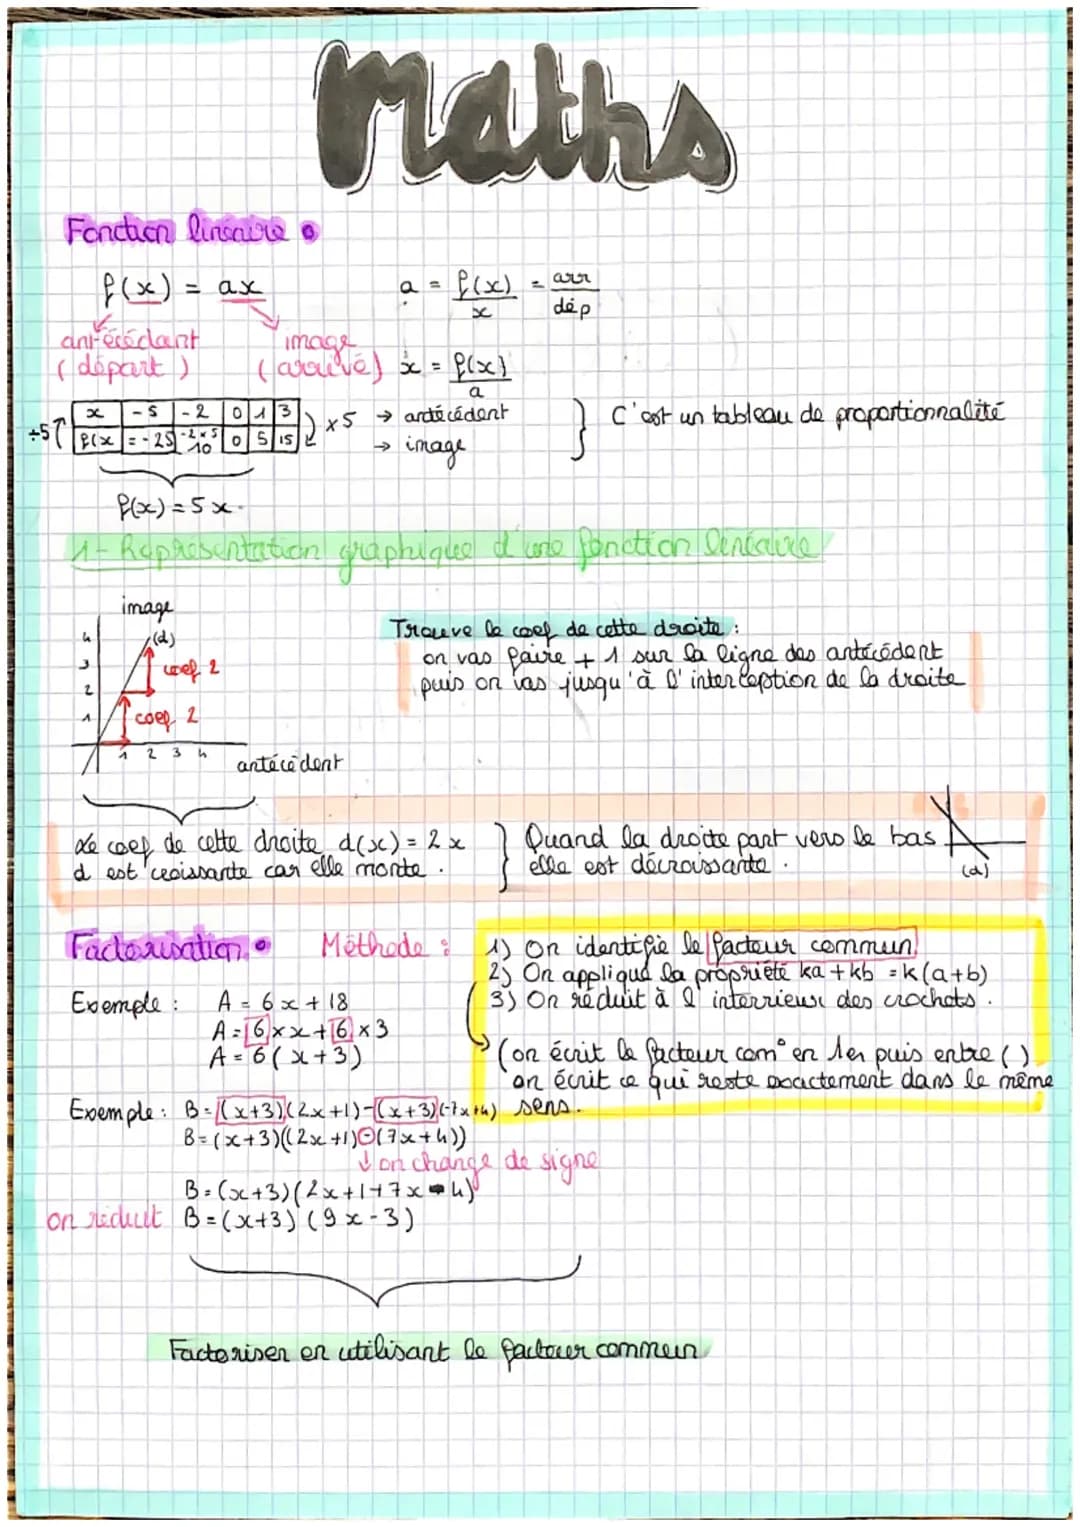 Maths
Fonction linéaire •
f(x) = ax
a = f(x)/x = arr/dép
antécédant
(départ)
image
(arrivé)
x = f(x)/a
x | -5 | -2 | 0 | 1 | 3
f(x | = -25 | -2×5 10 | 0 | 5 | 15
÷5
×5
→ antécédent
→ image
C'est un tableau de proportionnalité
f(x) = 5x.
1- Représentation graphique d'une fonction linéaire
image
(d)
coef 2
coef 2
4
3
2
1
1 2 3 4
antécédent
Trouve le coef de cette droite :
on vas faire + 1 sur la ligne des antécédent
puis on vas jusqu'à l'interception de la droite
Le coef de cette droite d(x) = 2x
d est croissante car elle monte .
Quand la droite part vers le bas
elle est décroissante .
(d)
Factorisation •
Méthode :
1) On identifie le facteur commun
2) On appliqué la propriété ka + kb = k(a+b)
3) On réduit à l'interrieur des crochets .
(on écrit le facteur com° en 1er puis entre ()
on écrit ce qui reste exactement dans le même
sens.
Exemple : A = 6x + 18
A = 6 × x + 6 × 3
A = 6 (x+3)
Exemple : B = (x+3)(2x+1)-(x+3)(-7x+4)
B = (x+3)((2x+1)-(7x+4))
↓ on change de signe
B = (x+3)(2x+1+7x-4)
on réduit B = (x+3) (9x-3)
Factoriser en utilisant le facteur commun